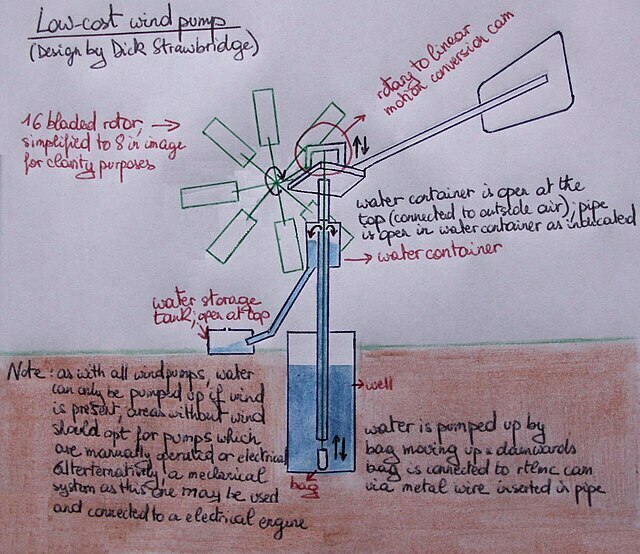 Low-cost wind pump
(Design by Dick Strawbridge)
rotary to linear
motion conversion cam
16 bladed rotor,
simplified to 8 in image
for clarity purposes
water container is open at the
top (connected to outside air); pipe
is open in water container as indicated
water container
water storage
tank; open at top
Note: as with all windpumps, water
can only be pumped up if wind
is present; areas without wind
should opt for pumps which
are manually operated or electrical
alterternatively, a mechanical
system as this one may be used
and connected to a electrical engine
well
water is pumped up by
bag moving up & downwards
bag is connected to rtlmc cam
via metal wire inserted in pipe
bag